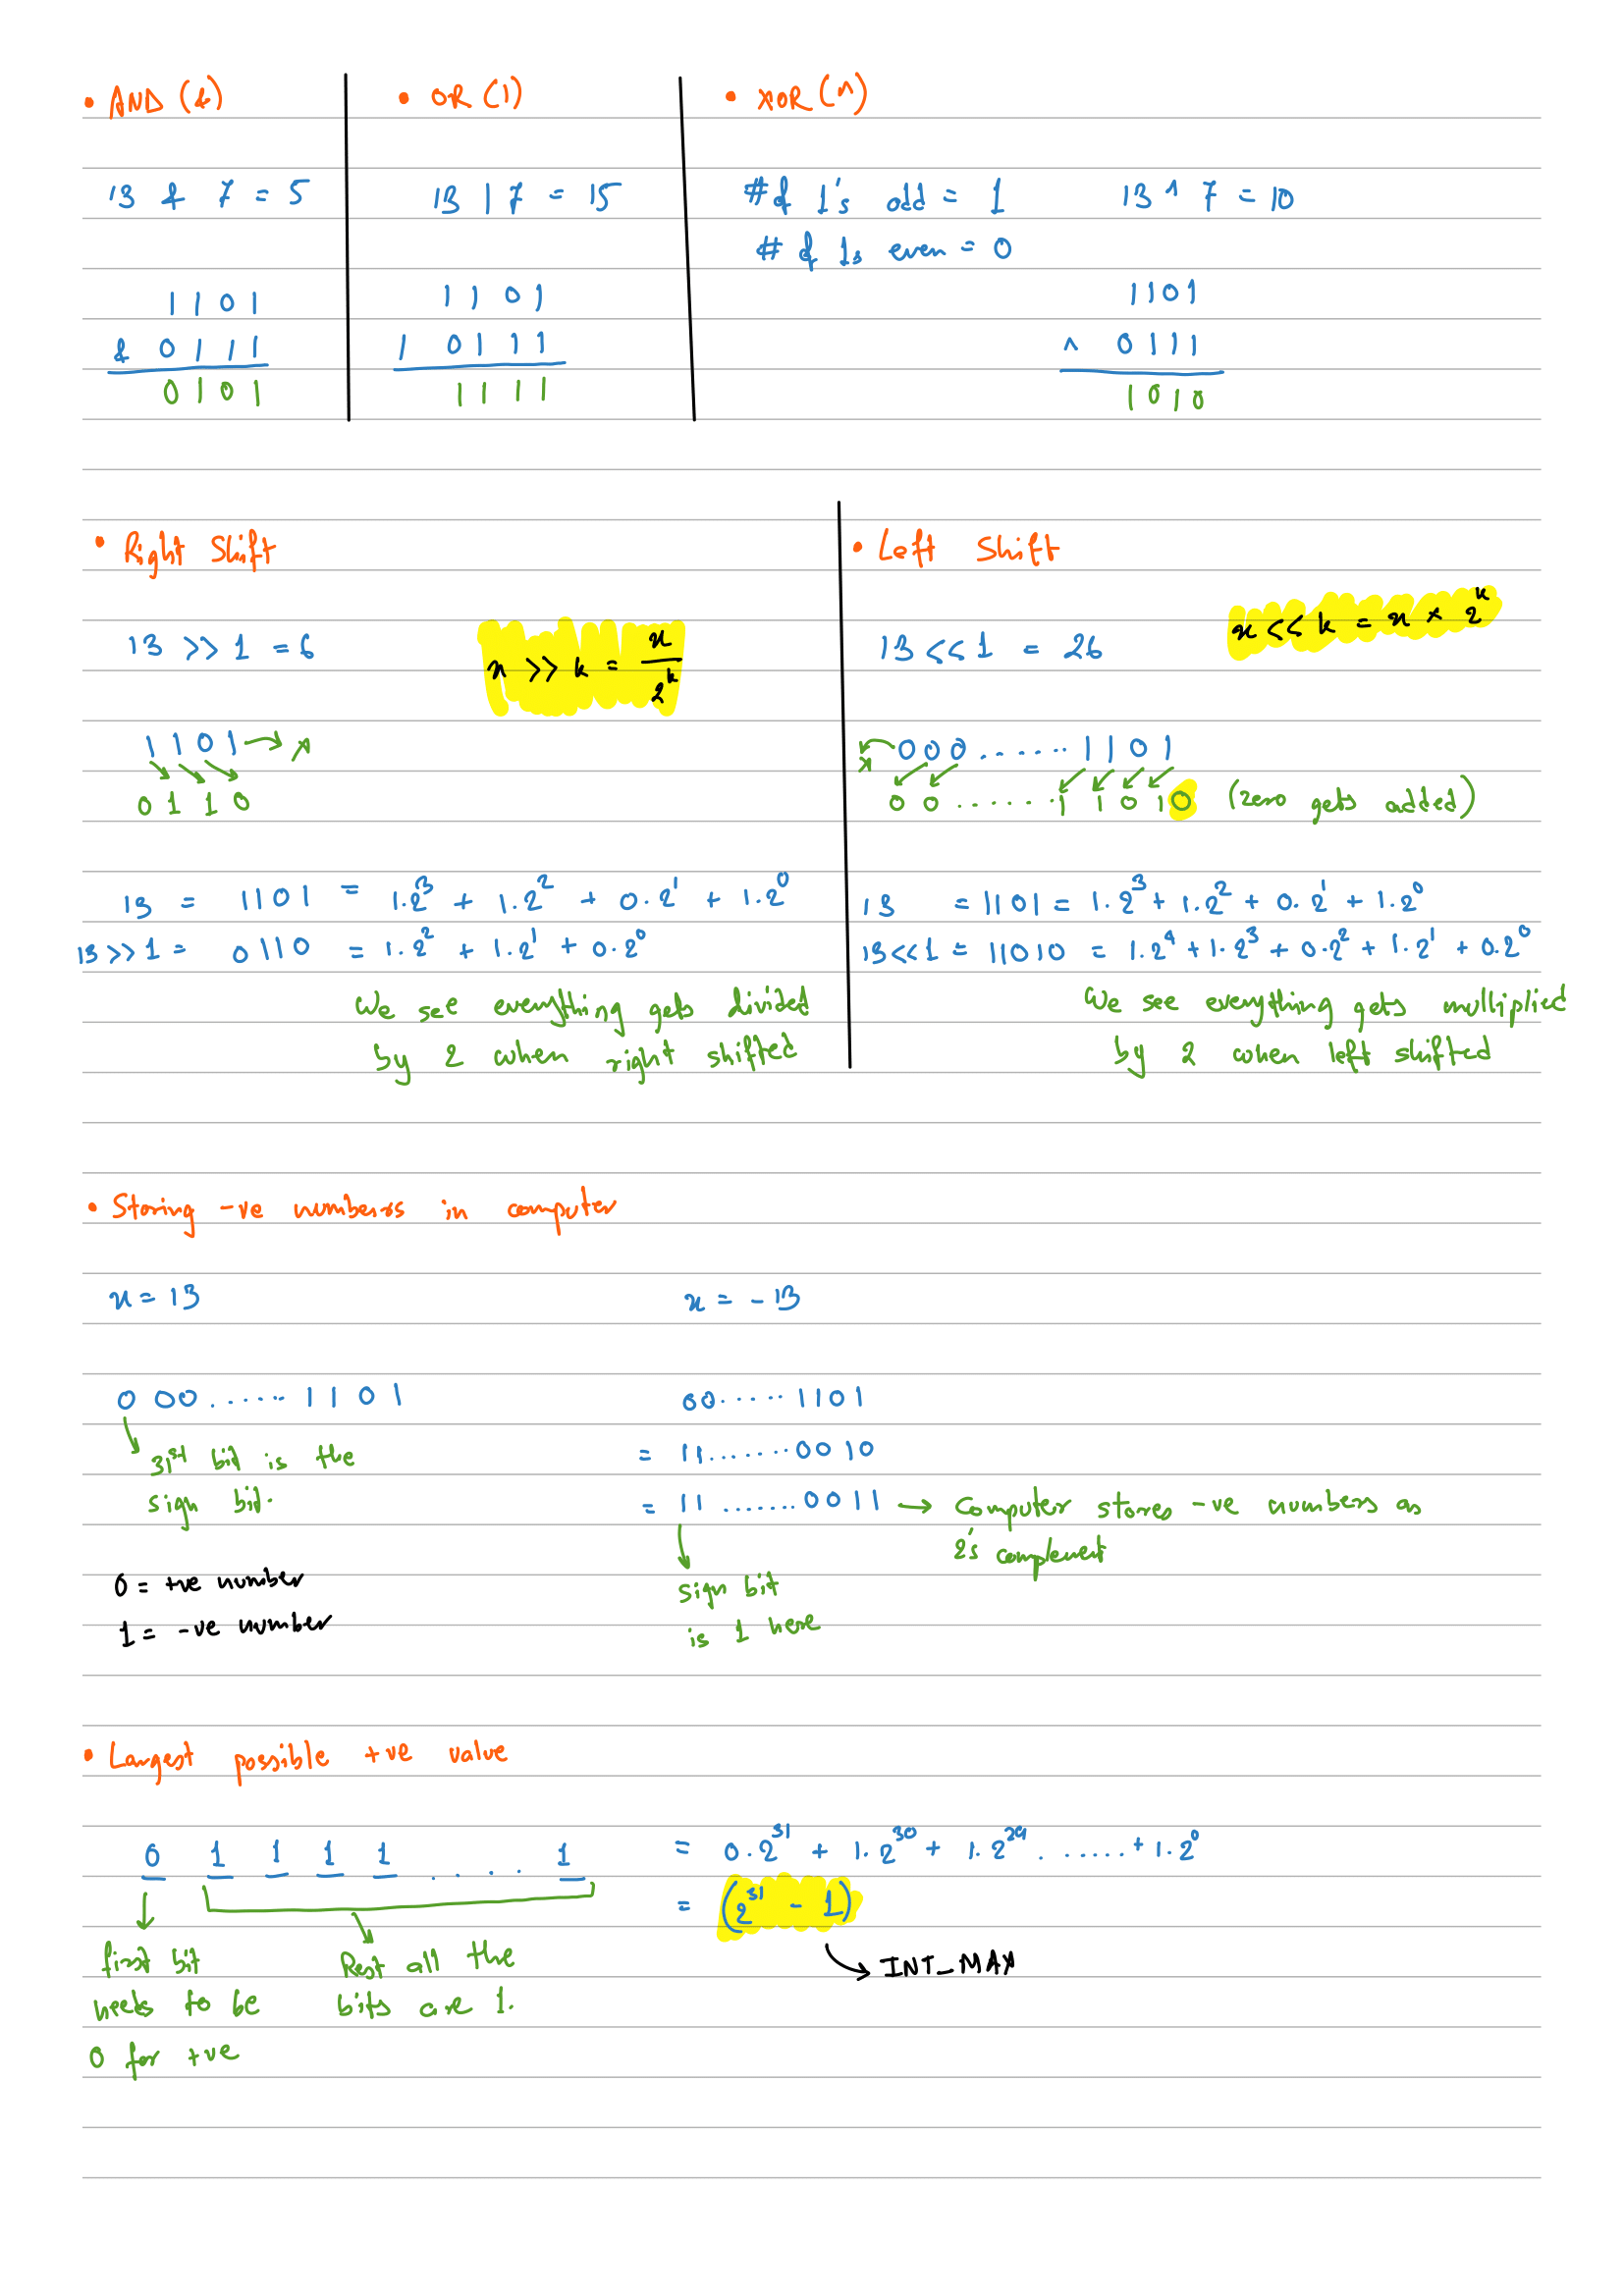 • AND (&)
13 & 7 = 5
1101
& 0111
0101
• OR (|)
13 | 7 = 15
1101
| 0111
1111
• XOR (^)
# of 1's odd = 1
# of 1s even = 0
13 ^ 7 = 10
1101
^ 0111
1010
• Right Shift
13 >> 1 = 6
x >> k = x / 2^k
1101 → x
0110
13 = 1101 = 1.2^3 + 1.2^2 + 0.2^1 + 1.2^0
13>>1 = 0110 = 1.2^2 + 1.2^1 + 0.2^0
We see everything gets divided
by 2 when right shifted
• Left Shift
13 << 1 = 26
x << k = x × 2^k
x 000.......1101
00.......11010 (zero gets added)
13 = 1101 = 1.2^3 + 1.2^2 + 0.2^1 + 1.2^0
13<<1 = 11010 = 1.2^4 + 1.2^3 + 0.2^2 + 1.2^1 + 0.2^0
We see everything gets mulliplied
by 2 when left shifted
• Storing -ve numberss in computer
x = 13
000.......1101
31st bit is the
sign bit.
0 = +ve number
1 = -ve number
x = -13
00......1101
= 11.......0010
= 11.......0011 → Computer stores -ve numbers as
2's complement
sign bit
is 1 here
• Largest possible +ve value
0 1 1 1 1 .... 1 = 0.2^31 + 1.2^30 + 1.2^29.......+ 1.2^0
= (2^31 - 1)
→ INT_MAX
first bit
needs to be
0 for +ve
Rest all the
bits are 1.